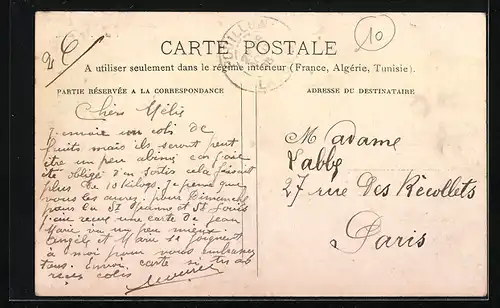 2 €
10
CARTE POSTALE
A utiliser seulement dans le régime intérieur (France, Algérie, Tunisie).
PARTIE RÉSERVÉE A LA CORRESPONDANCE
ADRESSE DU DESTINATAIRE
Chers
J'envoie un coli de
fruits mais ils seront peut
être un peu abimé car j'ai
été obligé d'en sortir cela faisait
plus de 10 kilogs. Je pense que
vous les aurez pour Dimanche
une carte de Jean
Marie va un peu mieux
Angèle et Marie se joignent
à moi pour vous embrasser
tous. Envoi carte si tu as
reçu colis
Madame
Labbe
27 rue Des Récollets
Paris